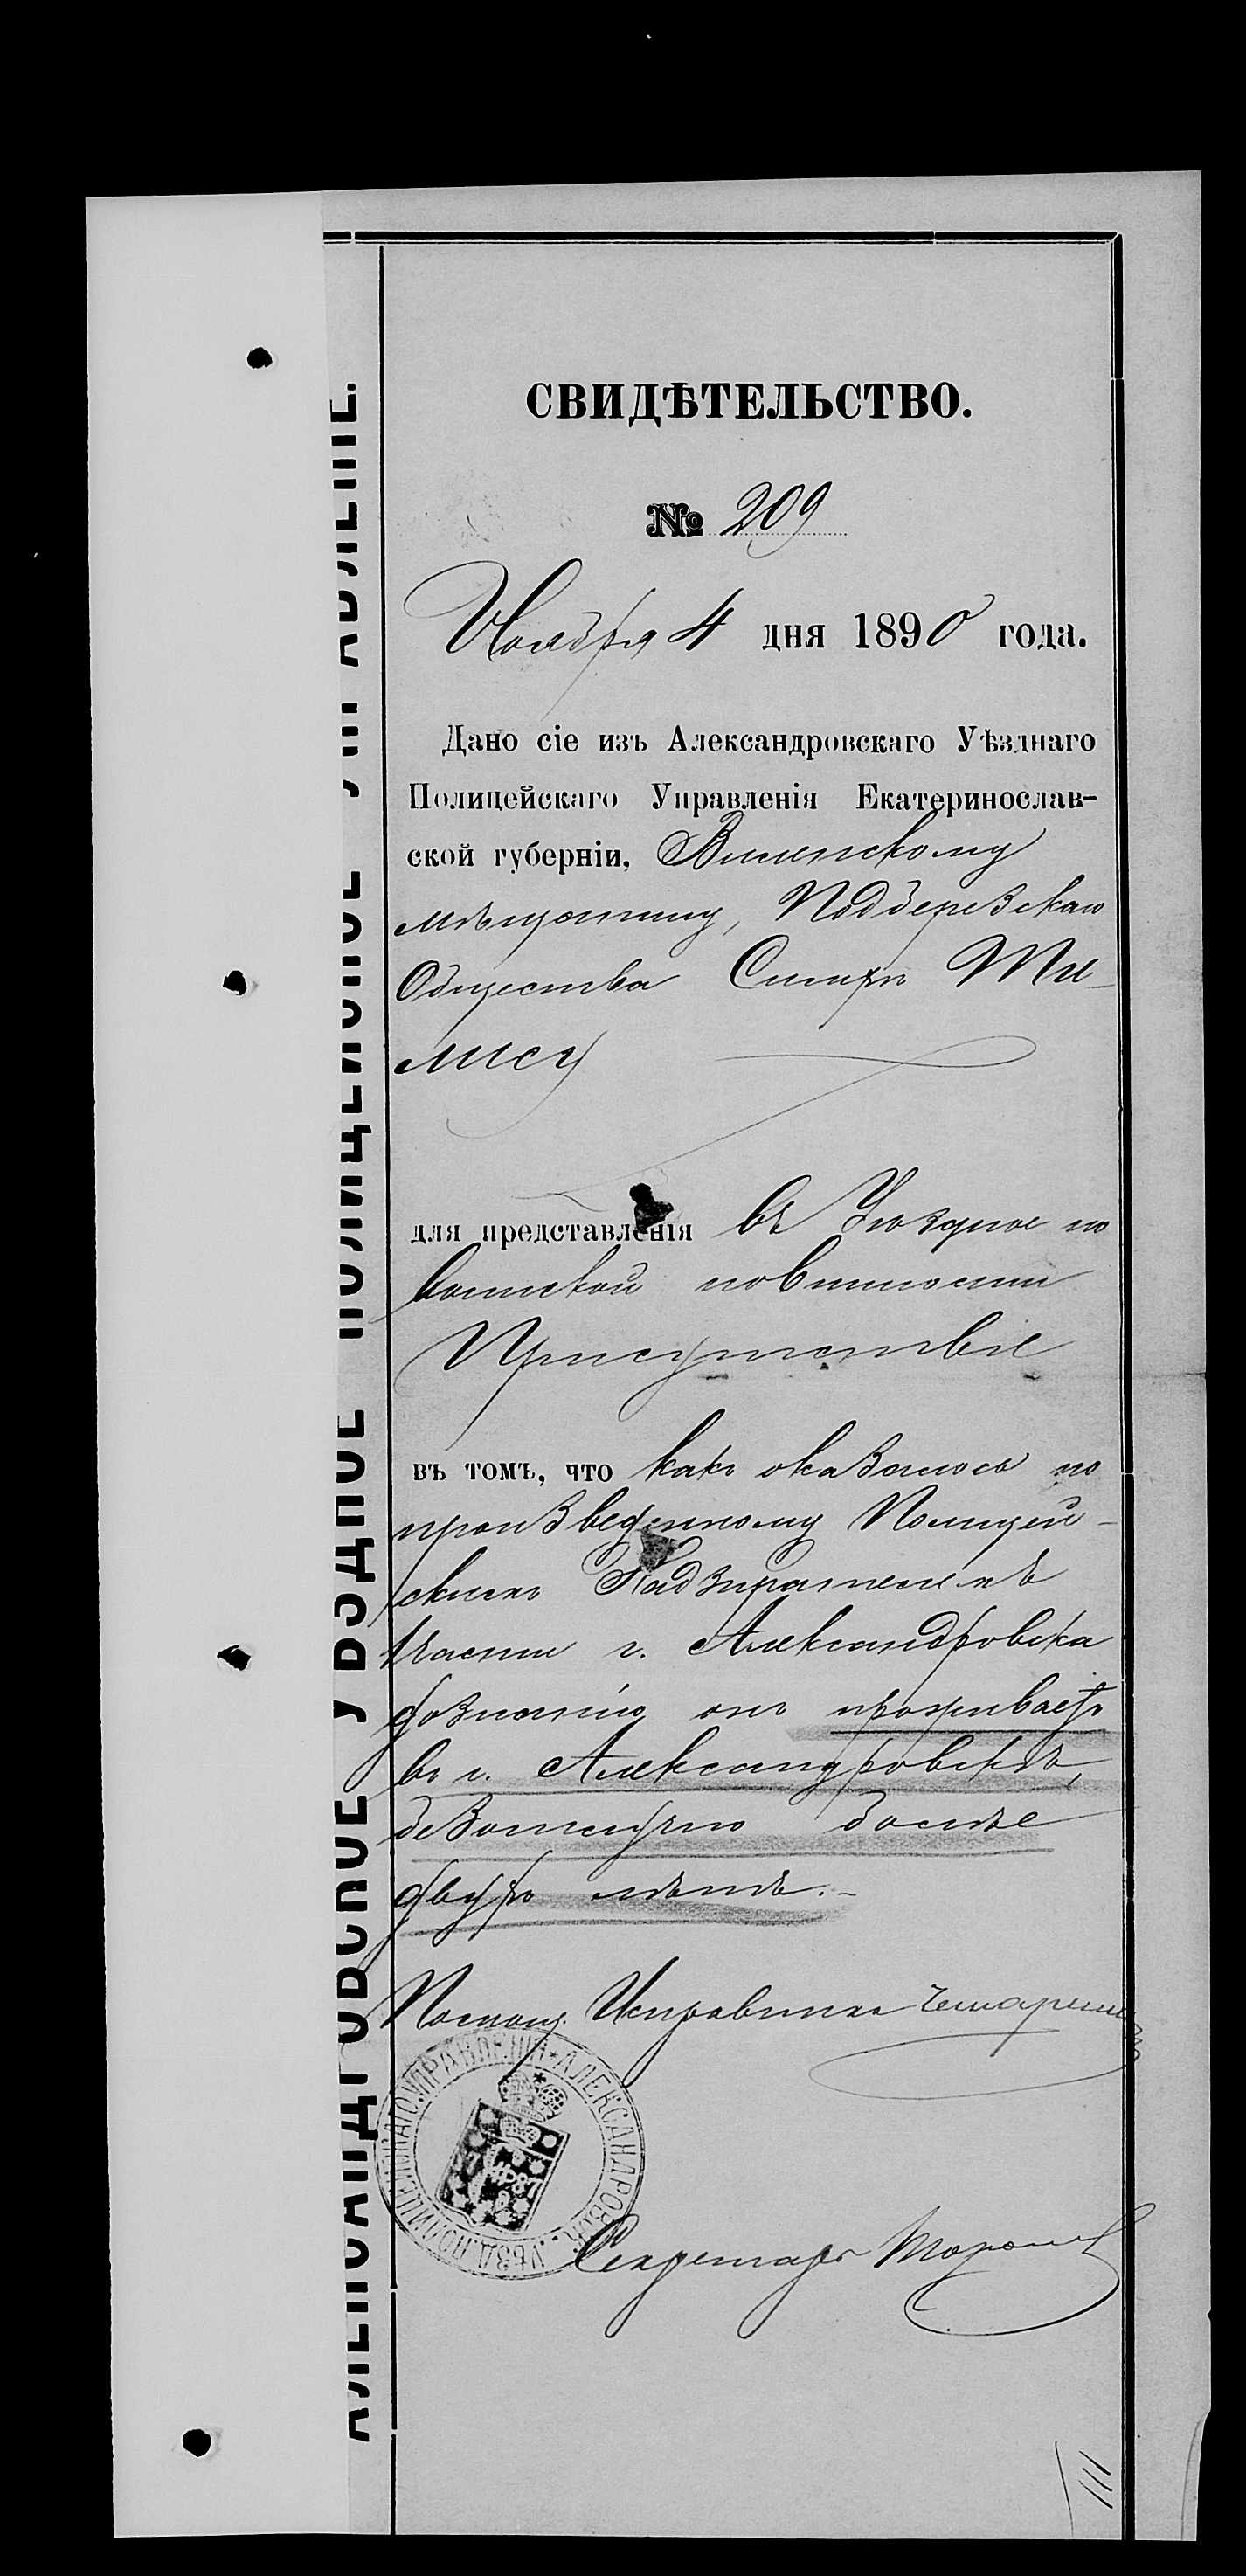 СВИДѢТЕЛЬСТВО.
№ 209
Ноября 4 дня 1890 года.
Дано сіе изъ Александровскаго Уѣзднаго
Полицейскаго Управленія Екатеринослав-
ской губерніи, Виленскому
мѣщанину, Подберезскаго
Общества
мису
для представленія въ Уѣздное по
воинской повинности
Присутствіе
въ томъ, что какъ оказалось по
произведенному Полицей-
скимъ Надзирателемъ
1 части г. Александровска
дознанію онъ проживаетъ
въ г. Александровскѣ,
безотлучно болѣе
двухъ лѣтъ.-
Помощ. Исправника
Секретарь
АЛЕКСАНДРОВСКОЕ УѢЗДНОЕ ПОЛИЦЕЙСКОЕ УПРАВЛЕНІЕ.